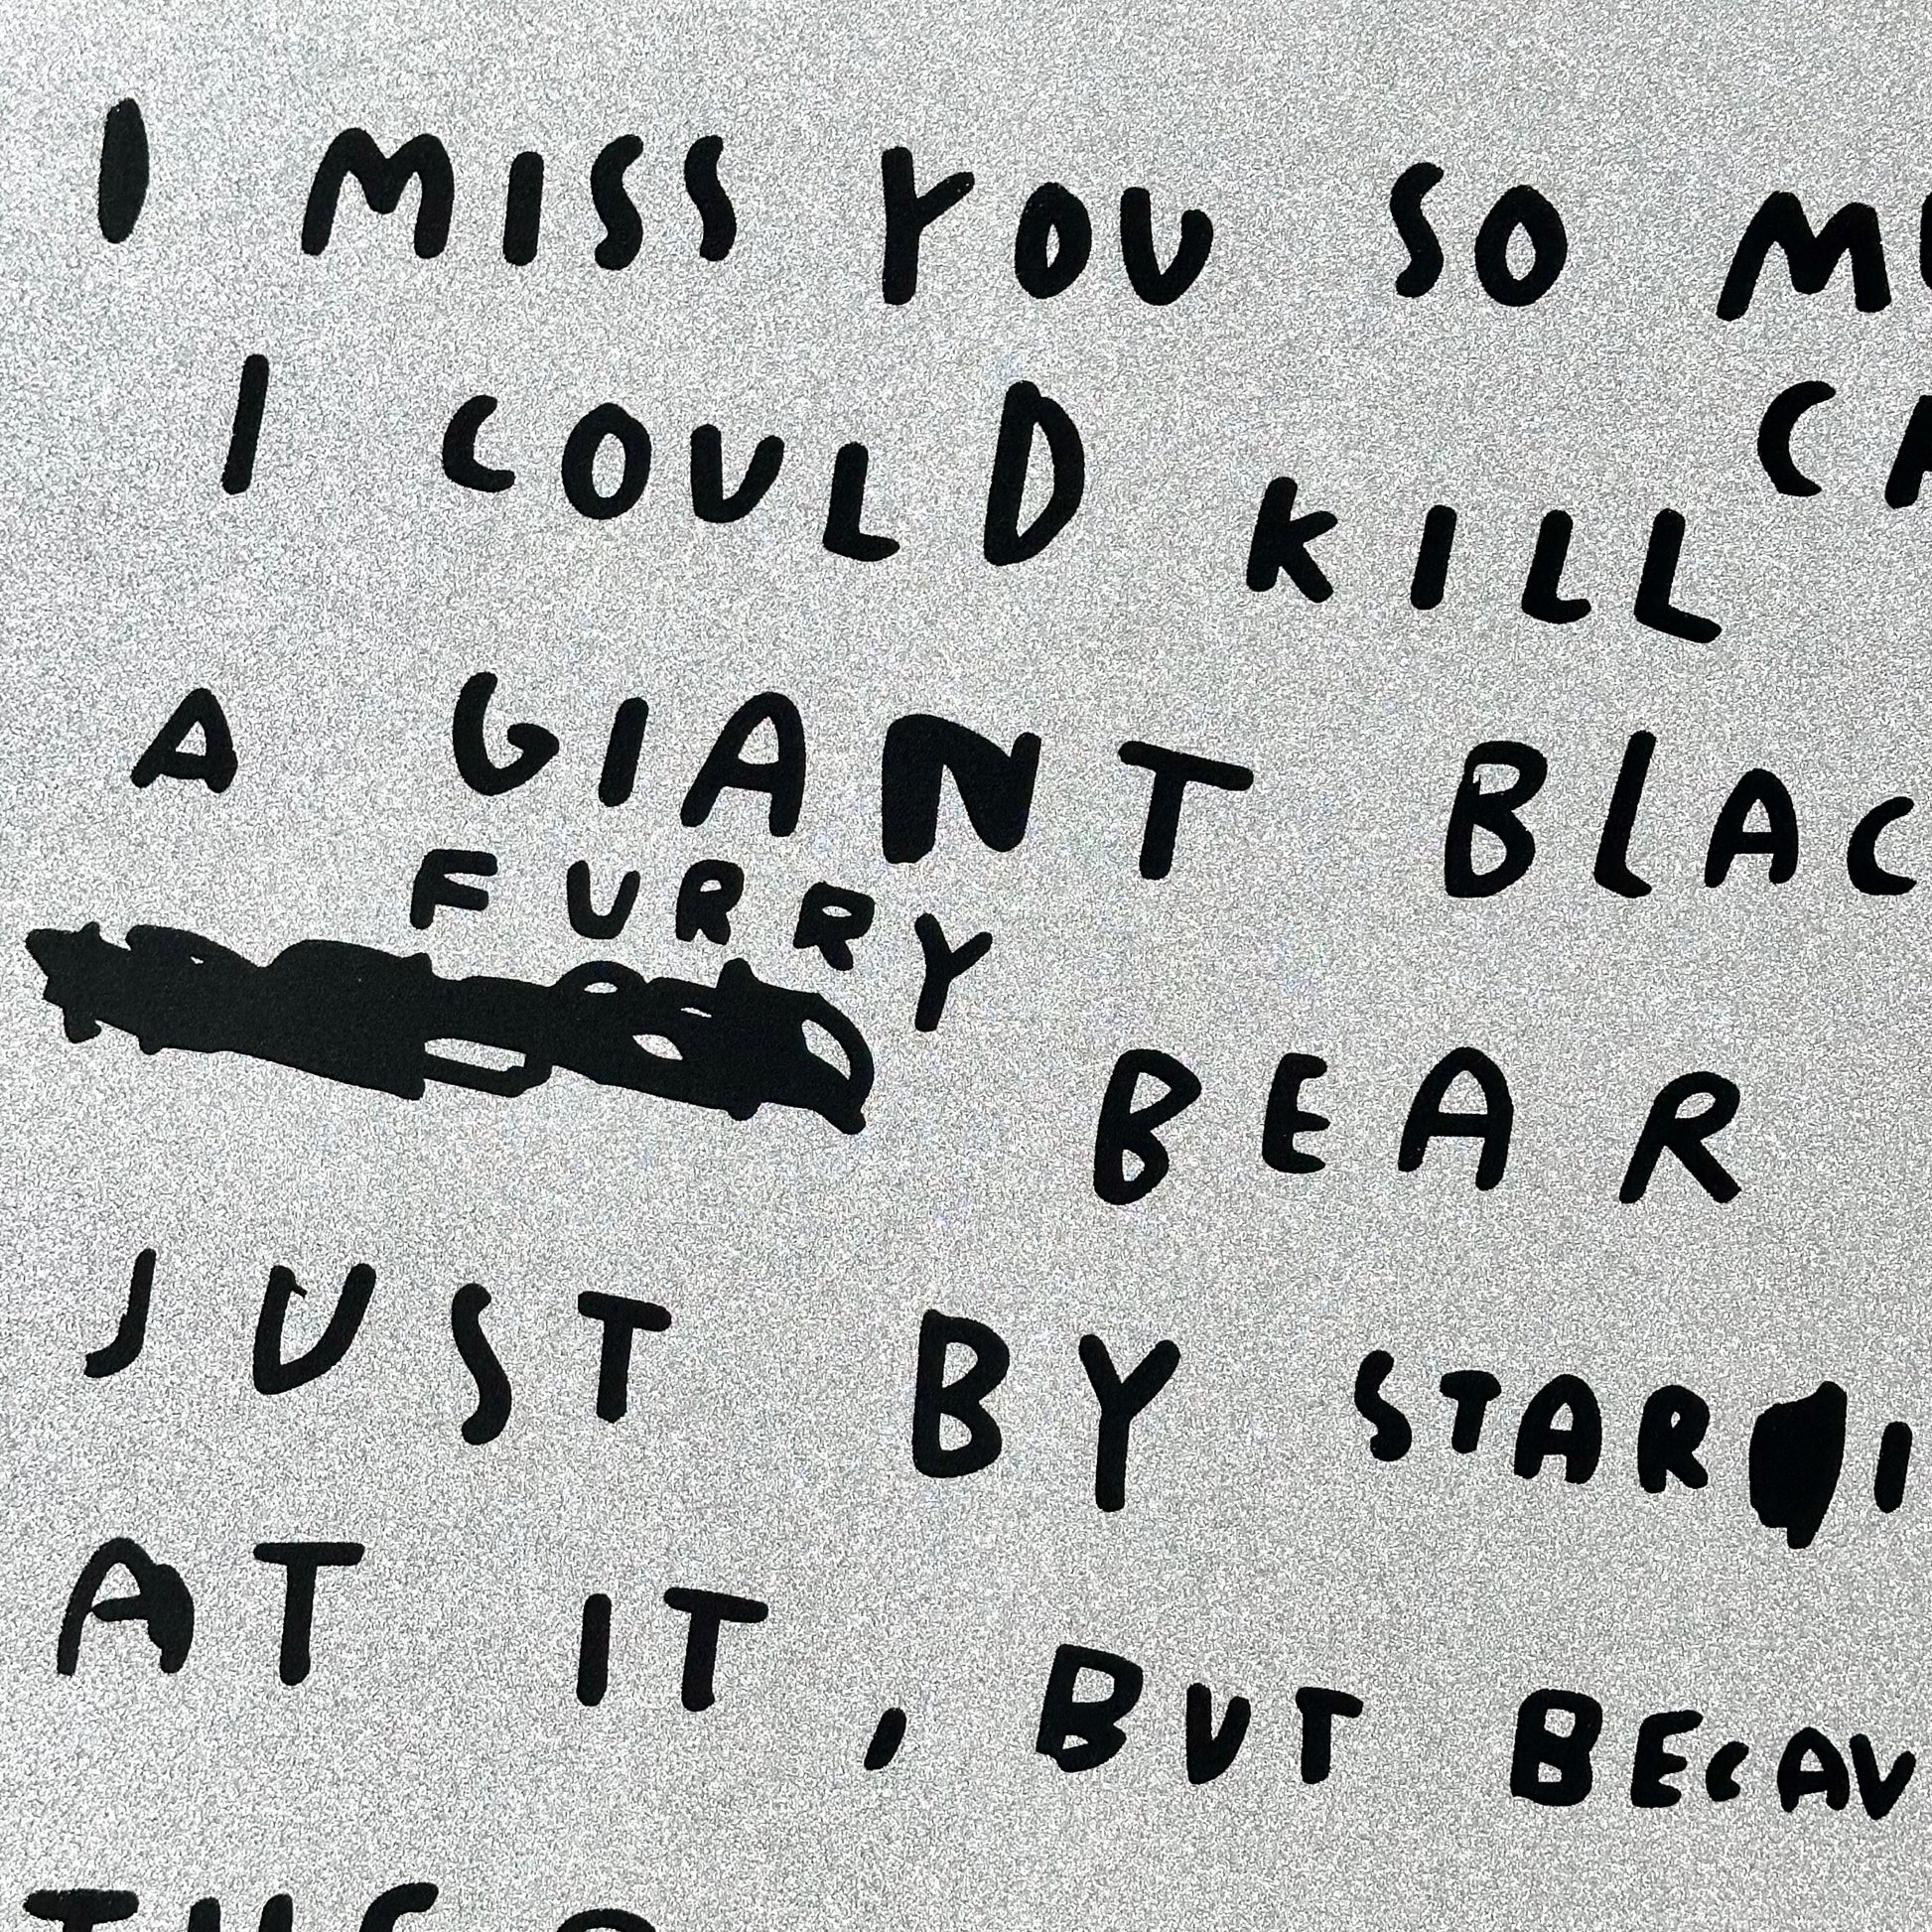 I MISS YOU SO
I COULD KILL
A GIANT BLAC
FURRY
BEAR
JUST BY STAR I
AT IT, BUT BECAU